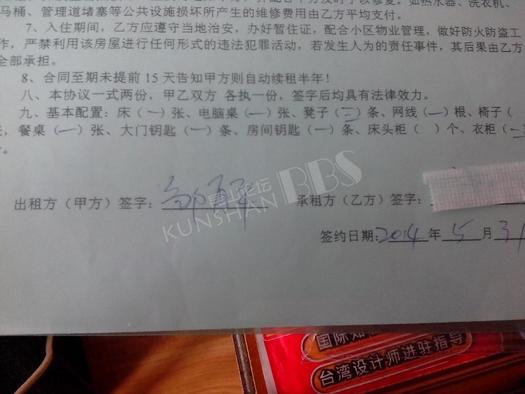 马桶、管理道堵塞等公共设施损坏所产生的维修费用由乙方平均支付。
7、入住期间，乙方应遵守当地治安，办好暂住证，配合小区物业管理，做好防火防盗工
作，严禁利用该房屋进行任何形式的违法犯罪活动，若发生人为的责任事件，其后果由乙方
全部承担。
8、合同至期未提前 15 天告知甲方则自动续租半年！
八、本协议一式两份，甲乙双方 各执一份，签字后均具有法律效力。
九、基本配置：床（一）张、电脑桌（一）张、凳子（二）条、网线（一）根、椅子（
，餐桌（一）张、大门钥匙（一）条、房间钥匙（一）条、床头柜（ ）个、衣柜（
出租方（甲方）签字： 承租方（乙方）签字：
KUNSHAN BBS
签约日期:2014 年 5 月 31
国际
台湾设计师进驻指导